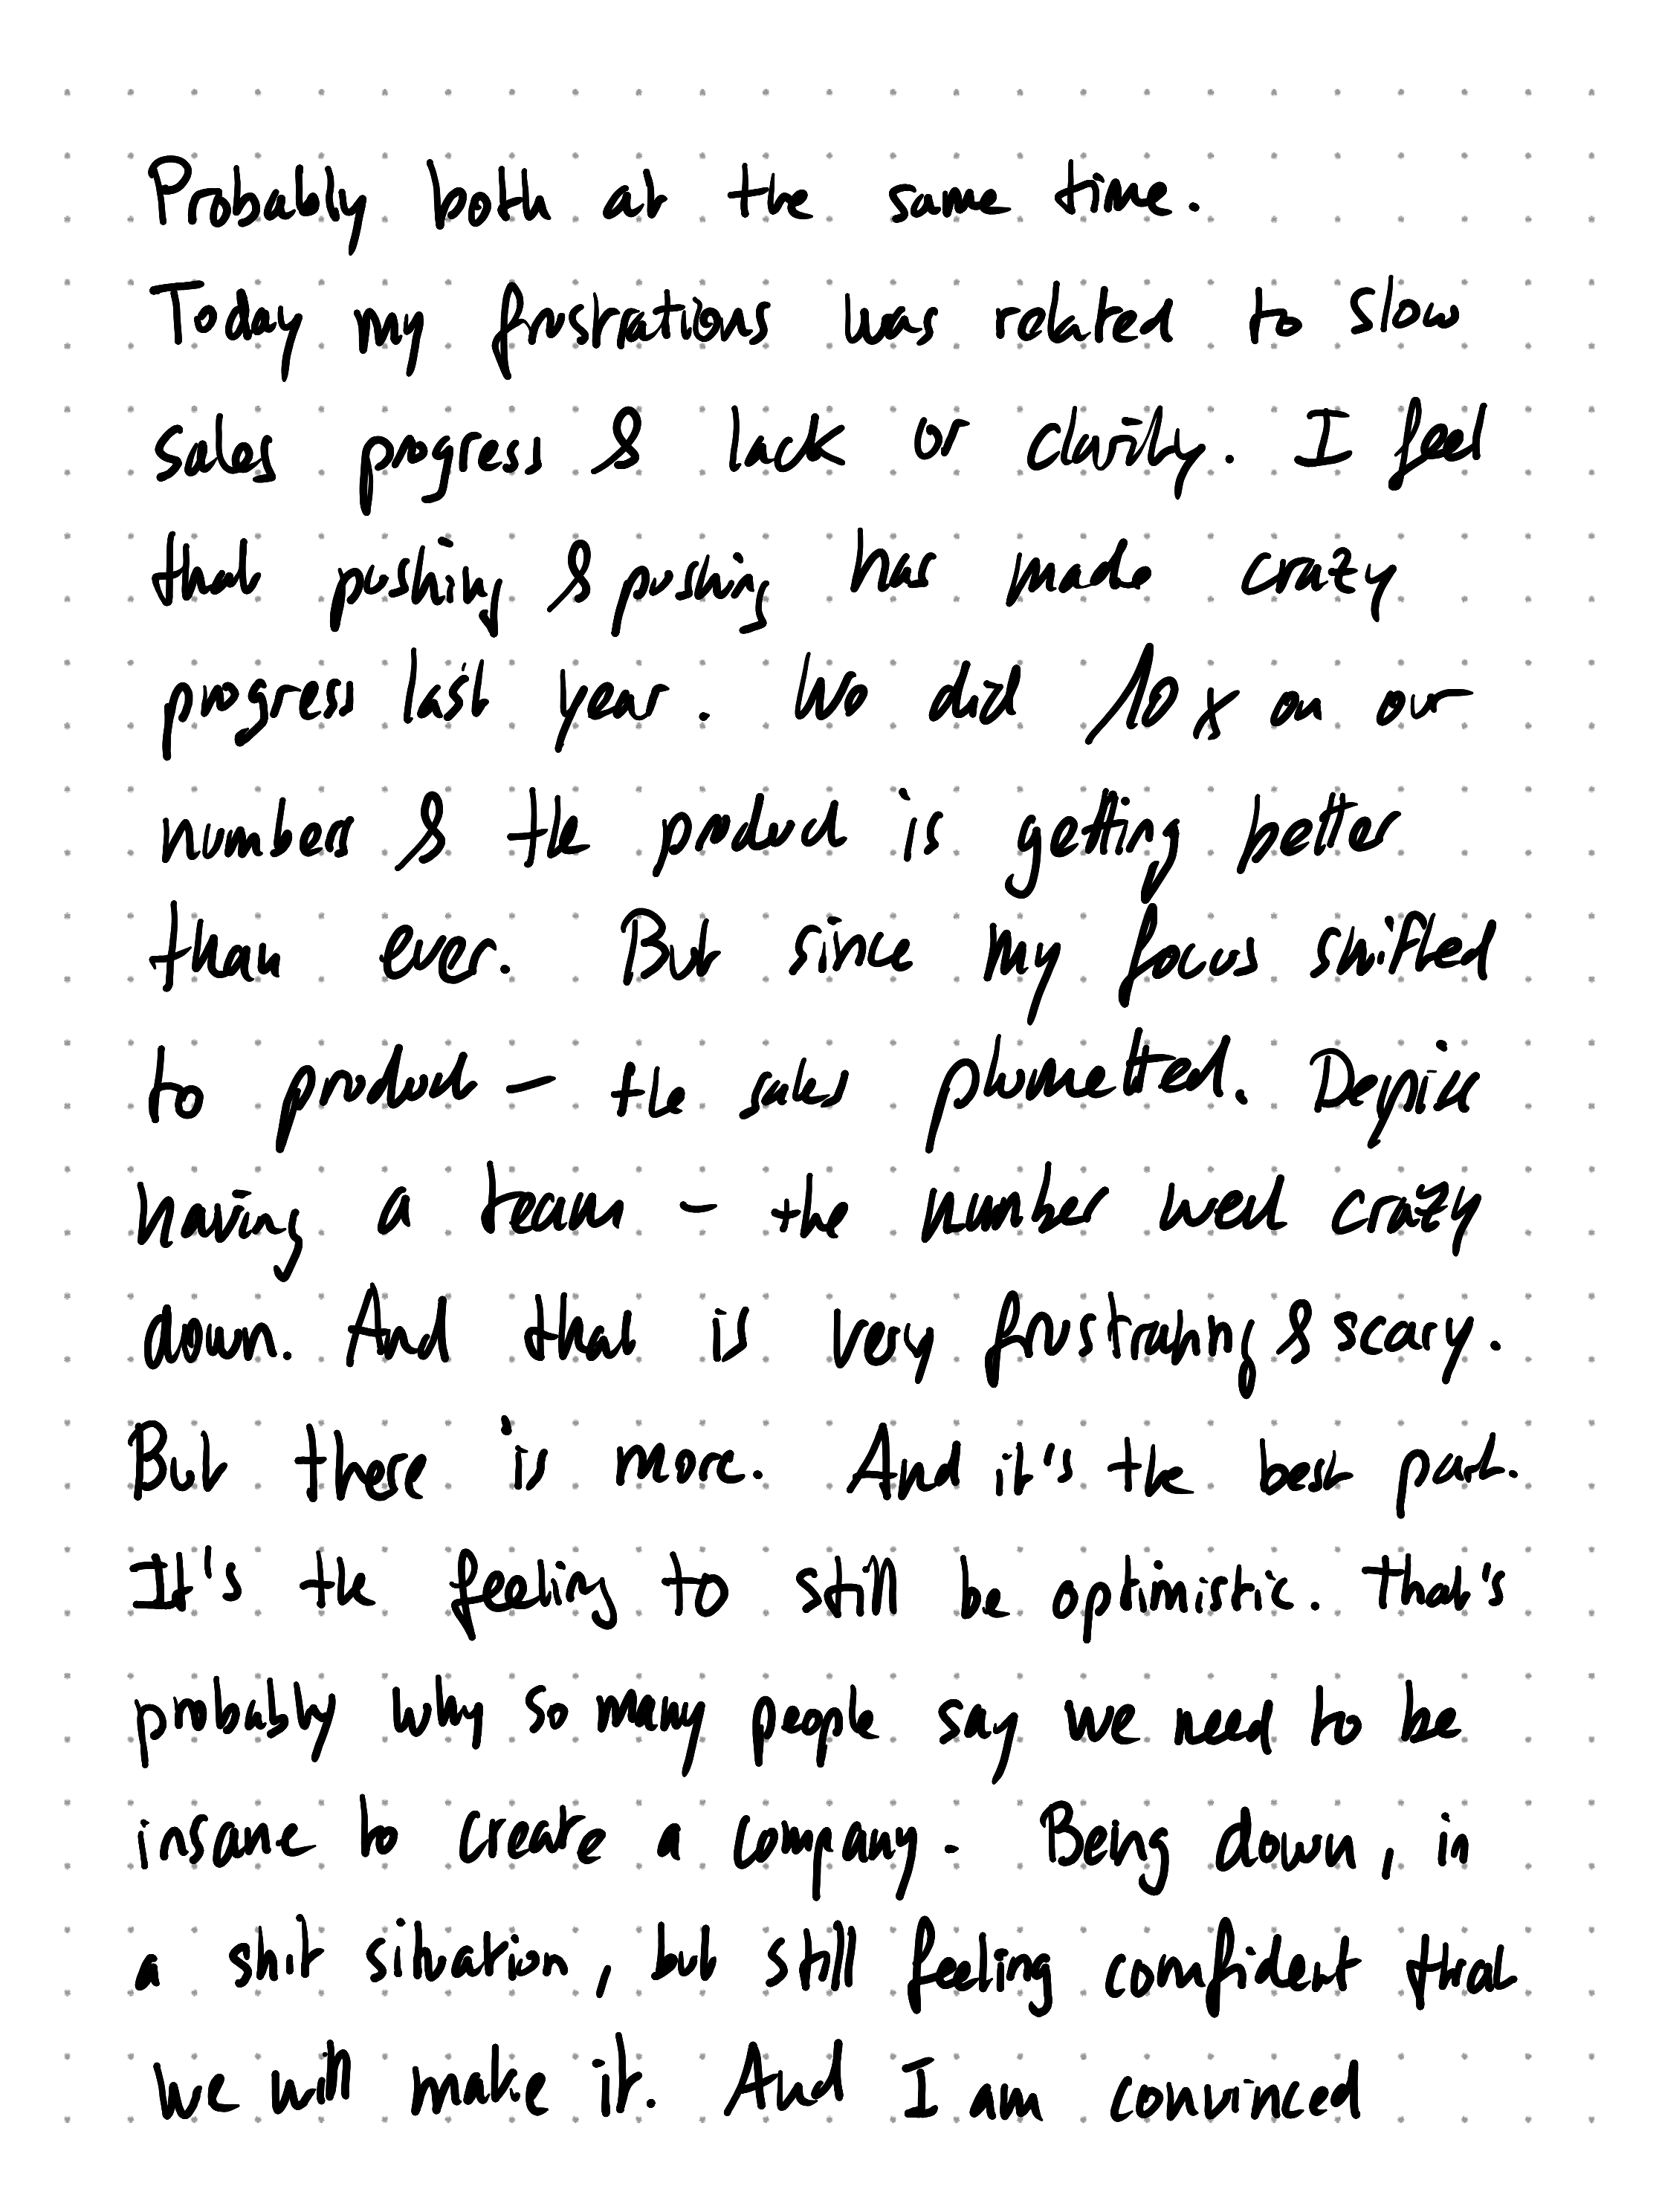 Probably both at the same time.
Today my frustrations was related to slow
sales progress & lack or clarity. I feel
that pushing & pushing has made crazy
progress last year. We did 10x on our
numbers & the product is getting better
than ever. But since my focus shifted
to product – the sales plumetted. Depite
having a team – the number went crazy
down. And that is very frustrating & scary.
But there is more. And it's the best part.
It's the feeling to still be optimistic. That's
probably why so many people say we need to be
insane to create a company. Being down, in
a shit situation, but still feeling comfident that
we will make it. And I am convinced